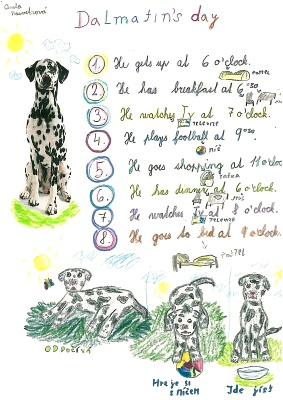 Dalmatin's day
1. He gets up at 6 o'clock.
POSTEL
2. He has breakfast at 6³⁰.
3. He watches Tv at 7 o'clock.
TELEVIZE
4. He plays football at 9³⁰.
MÍČ
5. He goes shopping at 11 o'clock
TAŠKA
6. He has dinner at 6 o'clock.
7. He watches Tv at 8 o'clock.
TELEVIZE
8. He goes to bed at 9 o'clock.
POSTEL
ODPOČÍVÁ
Hraje si
s míčem
Jde jíst